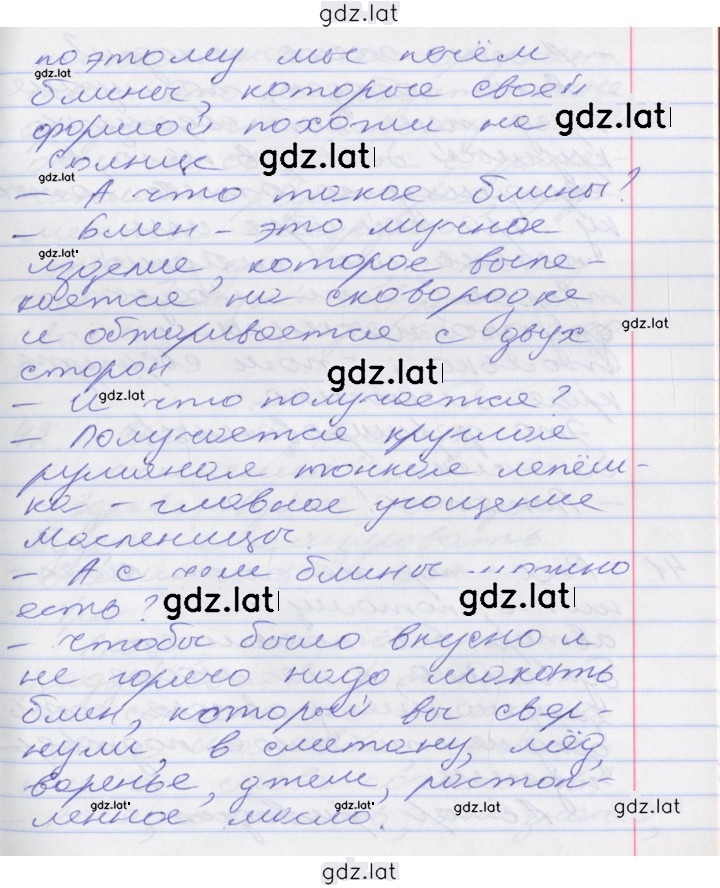 gdz.lat
поэтому мы печём
gdz.lat
блины, которые своей
формой похожи на gdz.lat
солнце gdz.lat
gdz.lat
- А что такое блины?
- Блин - это мучное
gdz.lat
изделие, которое выпе-
кается на сковородке
и обжиривается с двух gdz.lat
сторон gdz.lat
- И что получается? gdz.lat
- Получается круглая
румяная тонкая лепёш-
ка - главное угощение
Масленицы.
- А с чем блины можно
есть? gdz.lat gdz.lat
- Чтобы было вкусно и
не горячо надо макать
блин, который вы свер-
нули, в сметану, мёд,
варенье, джем, растоп-
gdz.lat gdz.lat gdz.lat gdz.lat
ленное масло.
gdz.lat